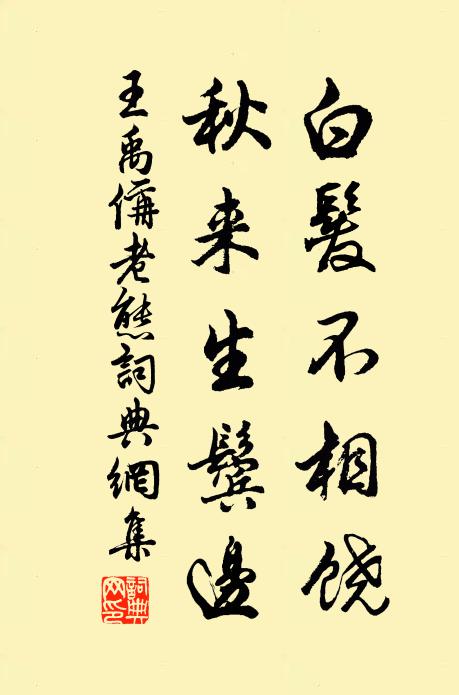 白髮不相饒
秋来生鬢邊
王禹偁老熊詞典網集
詞典
网印